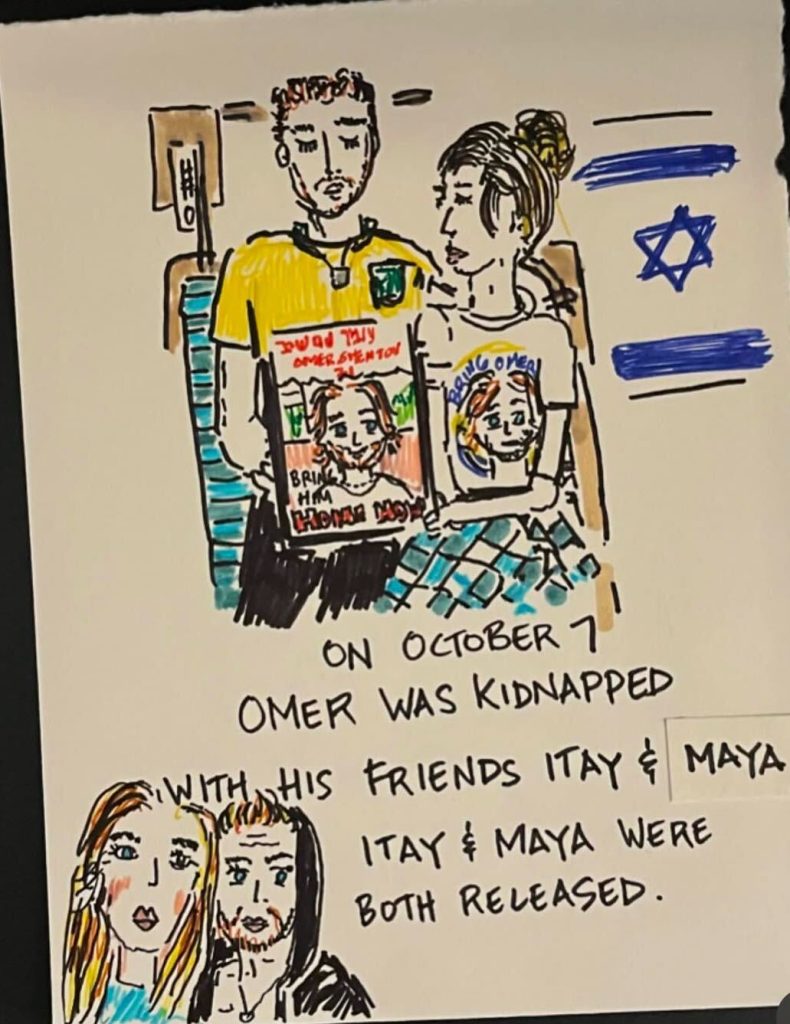 OMER SHEM TOV
BRING
HIM
HOME NOW
BRING OMER
ON OCTOBER 7
OMER WAS KIDNAPPED
WITH HIS FRIENDS ITAY & MAYA
ITAY & MAYA WERE
BOTH RELEASED.